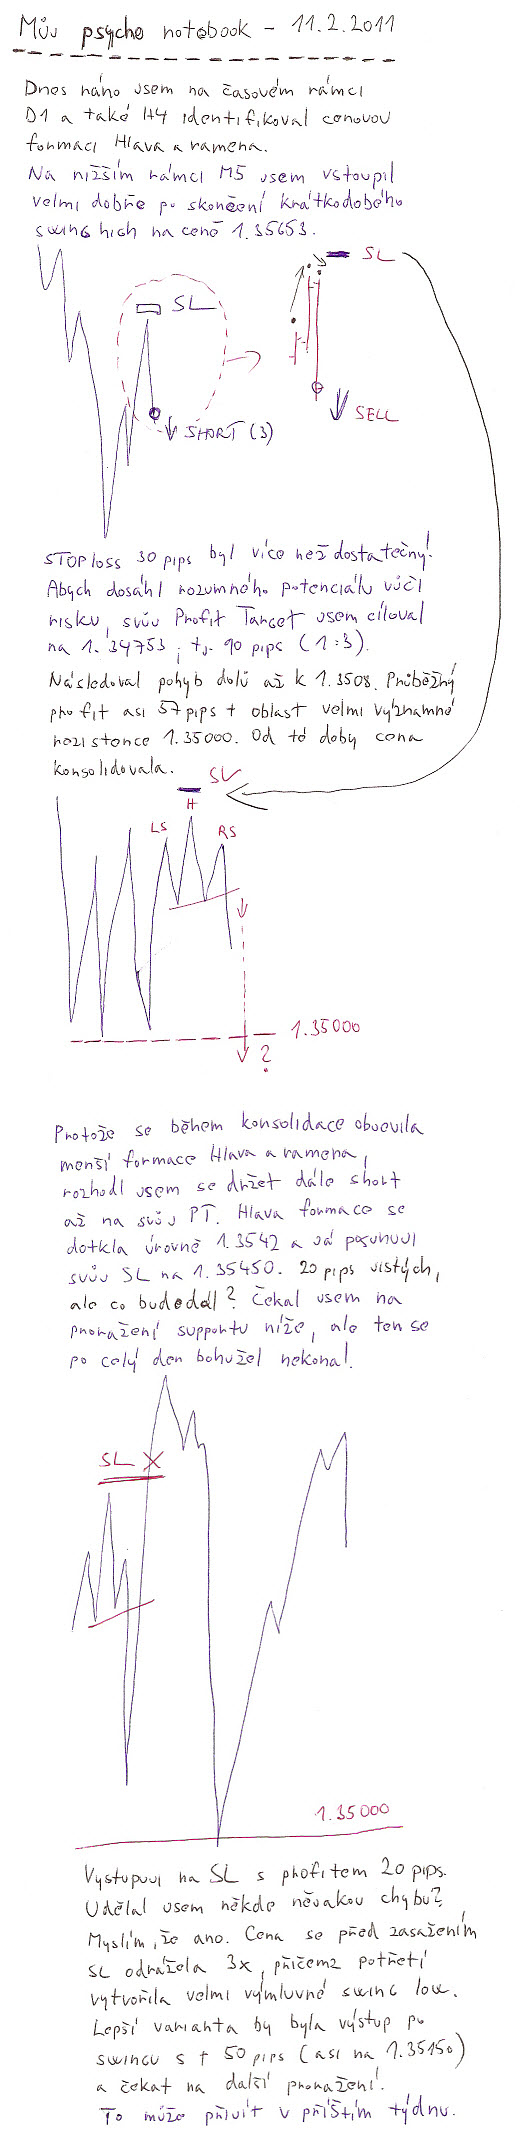 Můj psycho notebook - 11.2.2011
Dnes ráno jsem na časovém rámci
D1 a také H4 identifikoval cenovou
formaci Hlava a ramena.
Na nižším rámci M5 jsem vstoupil
velmi dobře po skončení krátkodobého
swing high na ceně 1.35653.
SL
SL
SHORT (3)
SELL
STOPloss 30 pips byl více než dostatečný!
Abych dosáhl rozumného potenciálu vůči
risku, svůj Profit Target jsem cíloval
na 1.34753, tj. 90 pips (1:3).
Následoval pohyb dolů až k 1.3508. Průběžný
profit asi 57 pips + oblast velmi významné
rezistence 1.35000. Od té doby cena
konsolidovala.
SL
H
LS
RS
1.35000
?
Protože se během konsolidace objevila
menší formace Hlava a ramena,
rozhodl jsem se držet dále short
až na svůj PT. Hlava formace se
dotkla úrovně 1.3542 a já posunuji
svůj SL na 1.35450. 20 pips jistých,
ale co bude dál? Čekal jsem na
proražení supportu níže, ale ten se
po celý den bohužel nekonal.
SL X
1.35000
Vystupuji na SL s profitem 20 pips.
Udělal jsem někde nějakou chybu?
Myslím, že ano. Cena se před zasažením
SL odrážela 3x, přičemž potřetí
vytvořila velmi výmluvné swing low.
Lepší varianta by byla výstup po
swingu s + 50 pips (asi na 1.35150)
a čekat na další proražení.
To může přijít v příštím týdnu.